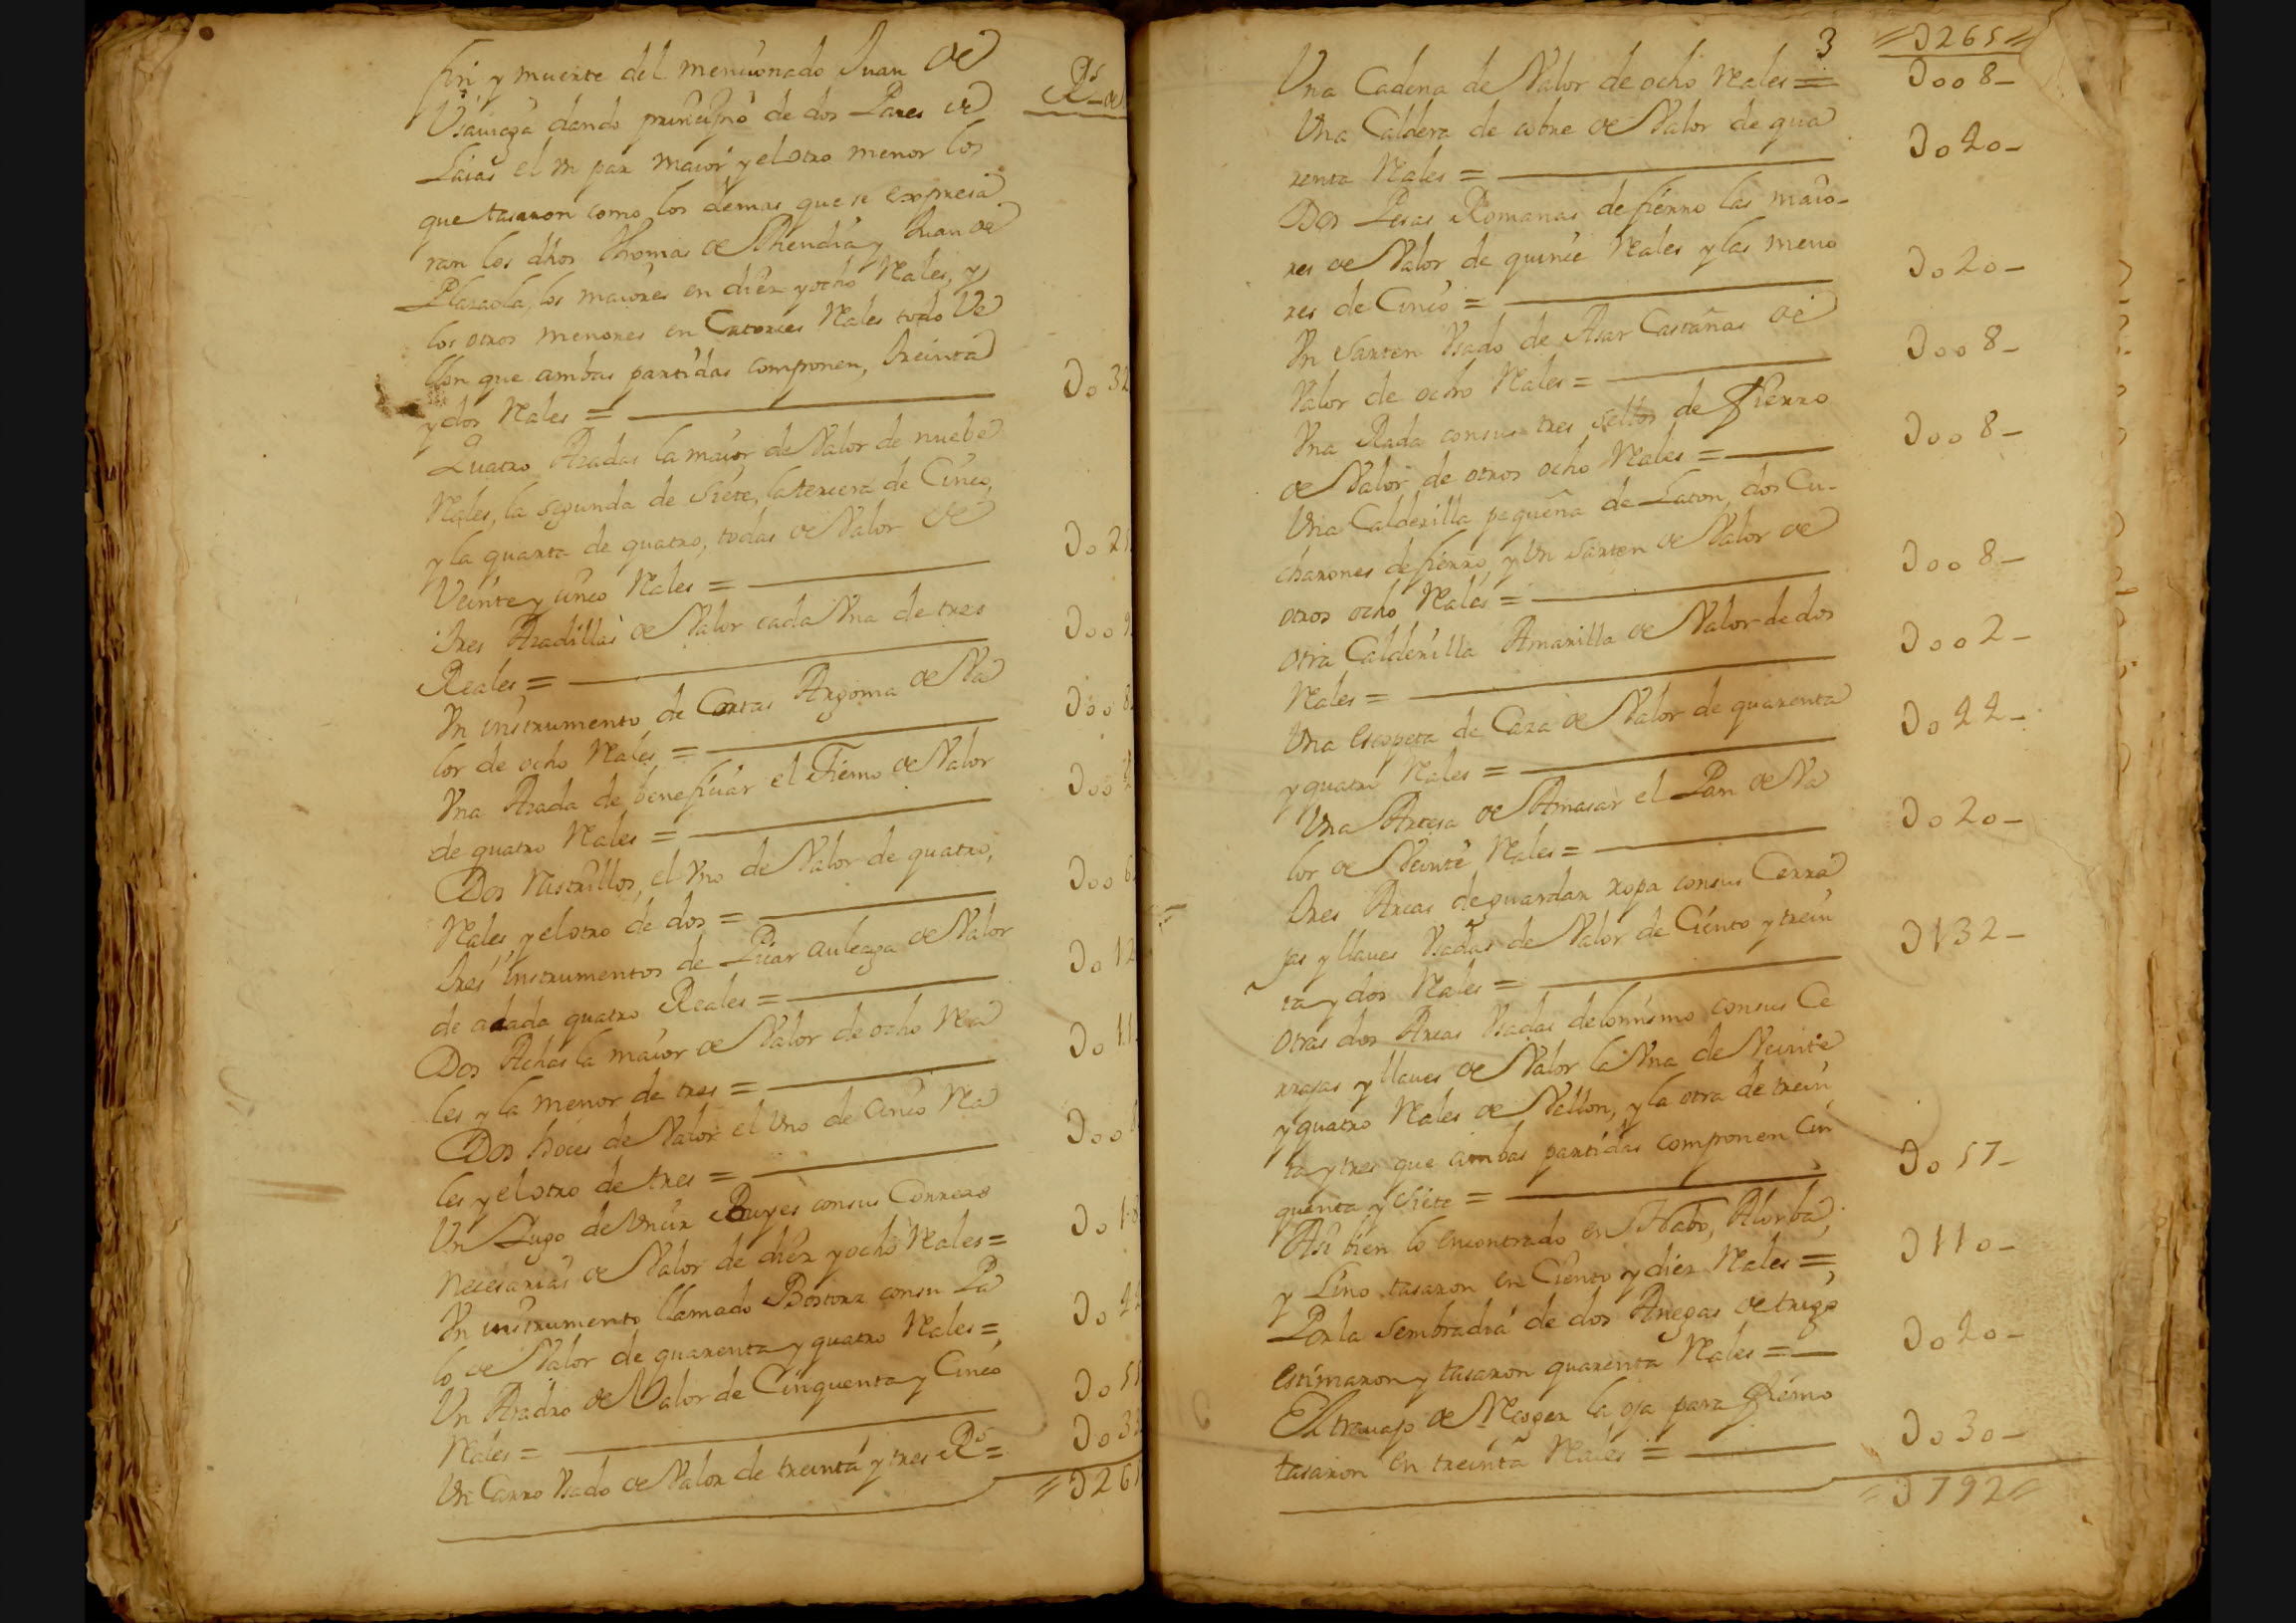 fin y muerte del mencionado Juan de
Vsaviaga dando principio de dos Pares de
Laias el vn par maior y el otro menor los
que tasaron como los demas que se expresa
ran los dhos Thomas de Rhendia y Juan de
Plazaola, los maiores en diez y ocho Rales, y
los otros menores en Catorces Rales todo Ve
llon que ambas partidas componen, treinta
y dos Rales =
Quatro Azadas la maior de Valor de nuebe
Rales, la segunda de Siete, la tercera de Cinco,
y la quarta de quatro, todas de Valor de
Veinte y cinco Rales =
tres Azadillas de Valor cada Vna de tres
Reales =
Vn instrumento de Cortas Argoma de Va
lor de ocho Rales =
Vna Azada de beneficiar el Fiemo de Valor
de quatro Rales =
Dos Rastrillos, el Vno de Valor de quatro,
Rales y el otro de dos =
tres instrumentos de Picar auleaga de Valor
de acada quatro Reales =
Dos Achas la maior de Valor de ocho Rea
les y la menor de tres =
Dos hoces de Valor el Vno de Cinco Rea
les y el otro de tres =
Vn Lugo de Vncir Bueyes consus Correas
necesarias de Valor de diez y ocho Rales =
Vn instrumento llamado Bostorz consu Pa
lo de Valor de quarenta y quatro Rales =
Vn Aradro de Valor de Cinquenta y Cinco
Rales =
Vn Carro Vsado de Valor de treinta y tres Rs =
Rs de
Do 32
Do 25
Doo 9
Doo 8
Doo
Doo 6
Do 12
Do 11
Doo
Do 18
Do 44
Do 55
Do 33
=D265
3 =D265=
Vna Cadena de Valor de ocho Rales = Doo8-
Vna Caldera de cobre de Valor de qua
renta Rales = Do40-
Dos Pesas Romanas de fierro las maio-
res de Valor de quince Rales y las meno
res de Cinco = Do20-
Vn Sarten Vsado de Asar Castañas de
Valor de ocho Rales = Doo8-
Vna Rada consus tres sellos de fierro
de Valor de otros ocho Rales = Doo8-
Vna Calderilla pequeña de Laton, dos Cu-
charones de fierro, y Vn Sarten de Valor de
otros ocho Rales = Doo8-
Otra Calderilla Amarilla de Valor de dos
Rales = Doo2-
Vna escopeta de Caza de Valor de quarenta
y quatro Rales = Do44-
Vna Artesa de Amasar el Pan de Va
lor de Veinte Rales = Do20-
tres Arcas de guardar ropa consus Cerra
jas y llaues Vsadas de Valor de Ciento y trein
ta y dos Rales = D132-
Otras dos Arcas Vsadas delomismo consus Ce
rrajas y llaues de Valor la Vna de Veinte
y quatro Rales de Vellon, y la otra de trein
ta y tres que ambas partidas componen Cin
quenta y Siete = Do57-
Asi bien lo encontrado en Nabo, Alorba,
y Lino tasaron en Ciento y diez Rales = D110-
Por la Sembradia de dos Anegas de trigo
estimaron y tasaron quarenta Rales = Do40-
El trauajo de Recoger la oja para fiemo
tasaron en treinta Rales = Do30-
=D792=